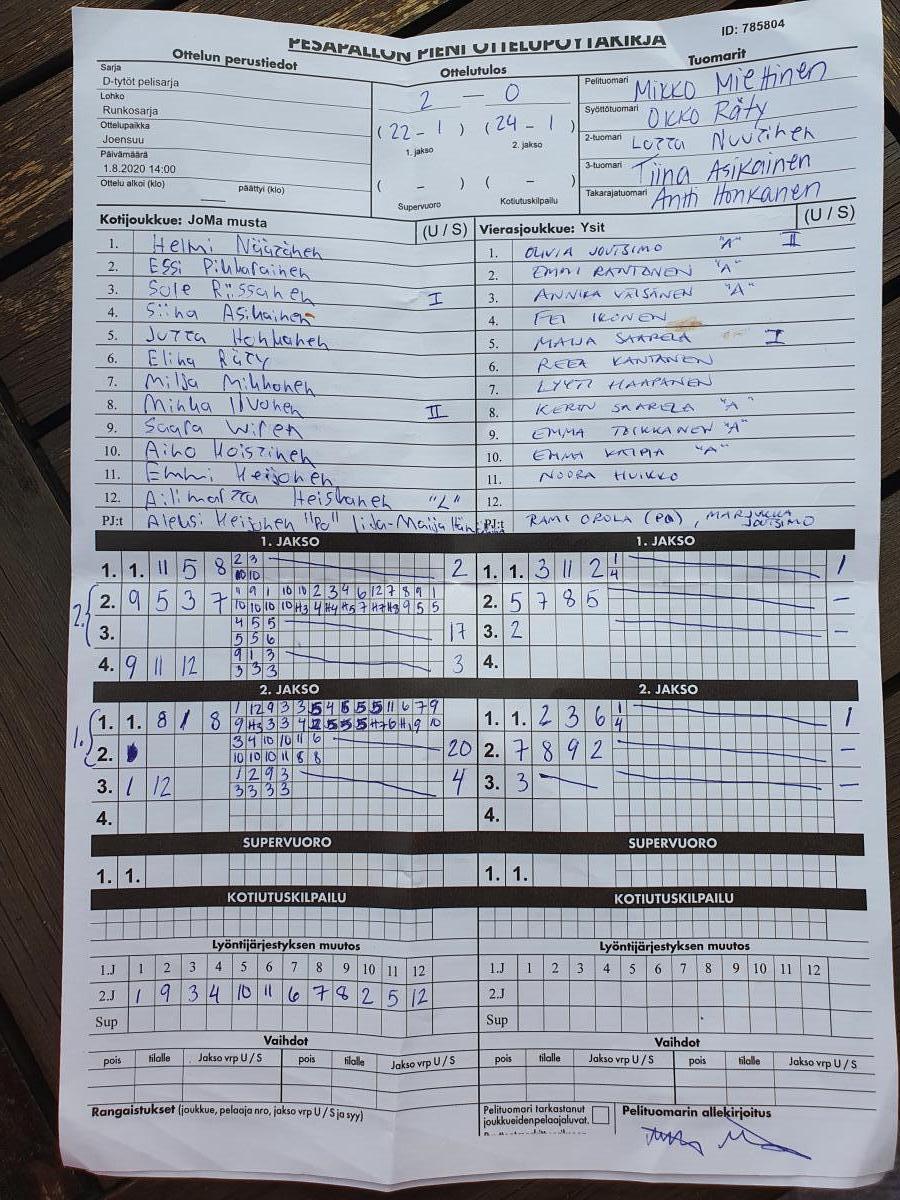 PESÄPALLON PIENI OTTELUPÖYTÄKIRJA
ID: 785804
Ottelun perustiedot
Ottelutulos
Tuomarit
Sarja
D-tytöt pelisarja
Lohko
Runkosarja
Ottelupaikka
Joensuu
Päivämäärä
1.8.2020 14:00
Ottelu alkoi (klo) päättyi (klo)
2 — 0
(22 - 1) (24 - 1)
1. jakso 2. jakso
( - ) ( - )
Supervuoro Kotiutuskilpailu
Pelituomari Mikko Miettinen
Syöttötuomari Okko Räty
2-tuomari Lotta Nuutinen
3-tuomari Tiina Asikainen
Takarajatuomari Antti Honkanen
Kotijoukkue: JoMa musta (U / S)
1. Helmi Näätänen
2. Essi Pikkarainen
3. Sole Riissanen I
4. Siina Asikainen
5. Jutta Honkanen
6. Elina Räty
7. Milja Mikkonen
8. Minka Iivonen II
9. Saara Wiren
10. Aino Koistinen
11. Emmi Keijonen
12. Ailimatta Heiskanen "L"
PJ:t Aleksi Keijonen "PO" Iida-Maija
Vierasjoukkue: Ysit (U / S)
1. OLIVIA JOUTSIMO "A" II
2. EMMI RANTONEN "A"
3. ANNIKA VÄISÄNEN "A"
4. FEI IKONEN
5. MAIJA SAARELA I
6. REEA KANTANEN
7. LYYTI HAAPANEN
8. KERIN SAARELA "A"
9. EMMA TOIKKANEN "A"
10. EMMA KAIPIA "A"
11. NOORA HUIKKO
12.
PJ:t RAMI OROLA (PO), MARJUKKA JOUTSIMO
1. JAKSO
1. 1. 11 5 8 2 3 2
10 10
2. { 2. 9 5 3 7 11 9 1 10 10 2 3 4 6 12 7 8 9 1
10 10 10 10 H3 4 H4 H5 7 H7 H8 9 5 5
3. 4 5 5 17
5 5 6
4. 9 11 12 9 1 3 3
3 3 3
1. JAKSO
1. 1. 3 11 2 1 1
4
2. 5 7 8 5 —
3. 2 —
4.
2. JAKSO
1. { 1. 1. 8 1 8 1 12 9 3 3 5 4 5 5 5 11 6 7 9
9 H3 3 3 4 2 5 5 5 H7 6 H1 9 10
2. 3 4 10 10 11 6 20
10 10 10 11 8 8
3. 1 12 1 2 9 3 4
3 3 3 3
4.
2. JAKSO
1. 1. 2 3 6 1 1
4
2. 7 8 9 2 —
3. 3 —
4.
SUPERVUORO
1. 1.
SUPERVUORO
1. 1.
KOTIUTUSKILPAILU
KOTIUTUSKILPAILU
Lyöntijärjestyksen muutos
1.J 1 2 3 4 5 6 7 8 9 10 11 12
2.J 1 9 3 4 10 11 6 7 8 2 5 12
Sup
Lyöntijärjestyksen muutos
1.J 1 2 3 4 5 6 7 8 9 10 11 12
2.J
Sup
Vaihdot
pois tilalle Jakso vrp U / S pois tilalle Jakso vrp U / S
Vaihdot
pois tilalle Jakso vrp U / S pois tilalle Jakso vrp U / S
Rangaistukset (joukkue, pelaaja nro, jakso vrp U / S ja syy)
Pelituomari tarkastanut
joukkueidenpelaajaluvat.
Pelituomarin allekirjoitus